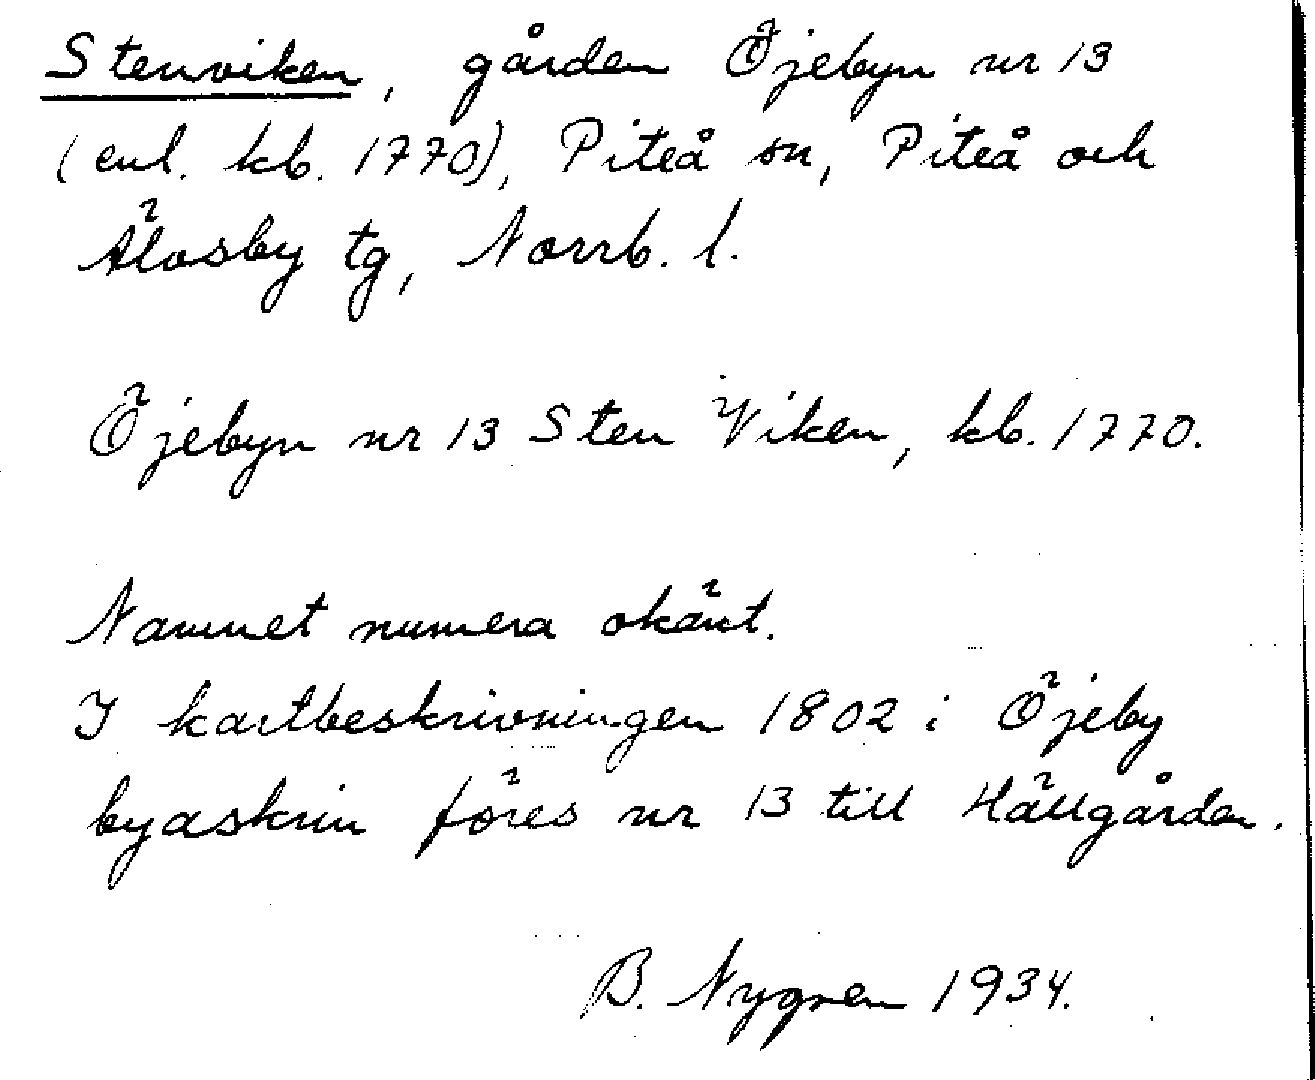 Stenviken, gården Öjebyn nr 13
(enl. kb. 1770), Piteå sn, Piteå och
Älvsby tg, Norrb. l.
Öjebyn nr 13 Sten Viken, kb. 1770.
Namnet numera okänt.
I kartbeskrivningen 1802 i Öjeby
byaskrin föres nr 13 till Hällgården.
B. Nygren 1934.